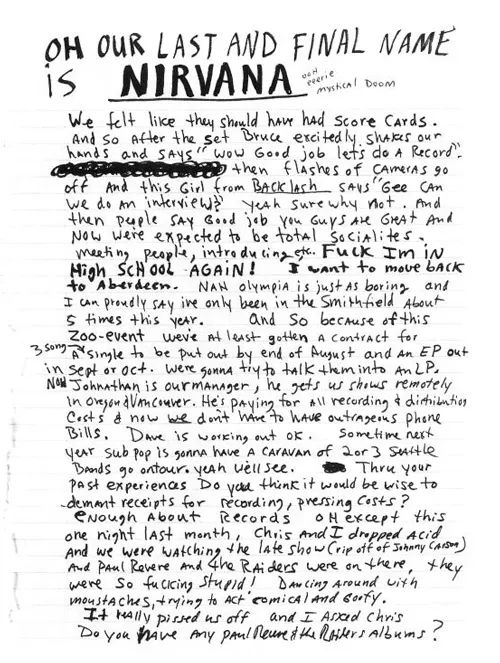 OH OUR LAST AND FINAL NAME
IS NIRVANA ooh eeerie
mystical Doom
We felt like they should have had score cards.
And so After the set Bruce excitedly shakes our
hands and says "wow Good job lets do A Record".
then flashes of cameras go
off And this Girl from BACKlash says "Gee Can
we do an interview?" yeah sure why not. And
then people say Good job you Guys are Great And
Now were expected to be total socialites.
meeting people, introducing etc. Fuck Im in
High School AGAIN! I want to move BACK
to Aberdeen. NAH olympia is just as boring and
I can proudly say ive only been in the Smithfield About
5 times this year. And so because of this
Zoo-event weve At least gotten a contract for
3 song
A single to be put out by end of August and an EP out
in Sept or oct. were gonna try to talk them into an LP.
Now Johnathan is our manager, he gets us shows remotely
in Oregon & Vancouver. He's paying for all recording & distribution
Costs & now we don't have to have outrageous phone
Bills. Dave is working out ok. Sometime next
year Sub pop is gonna have a caravan of 2 or 3 Seattle
Bands go on tour. yeah well see. Thru your
past experiences Do you think it would be wise to
demant receipts for recording, pressing costs?
enough About Records OH except this
one night last month, Chris and I dropped acid
And we were watching the late show (rip off of Johnny Carson)
And Paul Revere and the Raiders were on there, they
were so fucking stupid! Dancing around with
moustaches, trying to act comical and Goofy.
It really pissed us off and I Asked Chris
Do you have Any paul Revere & the Raiders Albums?